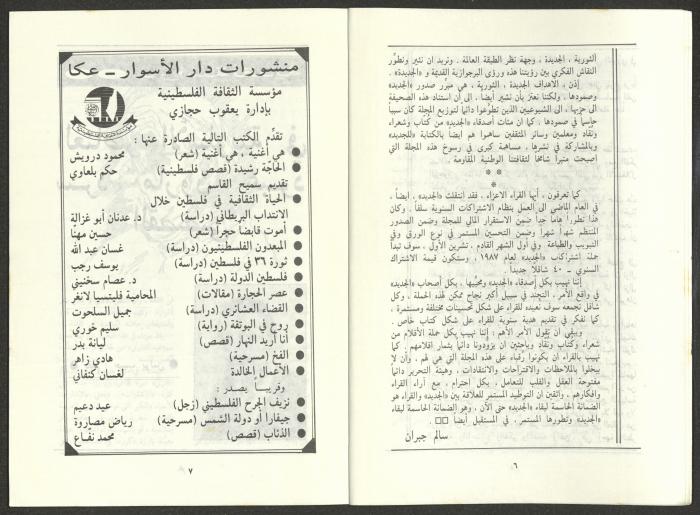 الثورية ، الجديدة ، وجهة نظر الطبقة العاملة . ونريد ان نثير ونطوّر
النقاش الفكري بين رؤيتنا هذه ورؤى البرجوازية القديمة و «الجديدة» .
إذن ، الاهداف الجديدة ، الثورية ، هي مبرّر صدور «الجديد»
وصمودها . ولكننا نعتز بأن نشير أيضاً ، الى ان استناد هذه الصحيفة
الى حزبها ، الى الشيوعيين الذين تطوعوا دائماً لتوزيع المجلة كان سبباً
حاسماً في صمودها . كما ان مئات أصدقاء «الجديد» من كُتّاب وشعراء
ونقّاد ومعلمين وسائر المثقفين ساهموا هم ايضاً بالكتابة «للجديد»
وبالمشاركة في نشرها ، مساهمة كبرى في رسوخ هذه المجلة التي
اصبحت منبراً شامخاً لثقافتنا الوطنية المقاومة .
* *
*
كما تعرفون ، أيها القراء الاعزاء ، فقد إنتقلت «الجديد» ، ايضاً ،
في العام الماضي الى العمل بنظام الاشتراكات السنوية سلفاً . وكان
هذا تطوراً هاماً جداً ضمن الاستقرار المالي للمجلة وضمن الصدور
المنتظم شهراً شهراً وضمن التحسين المستمر في نوع الورق وفي
التبويب والطباعة . وفي أول الشهر القادم ، تشرين الأول ، سوف تبدأ
حملة اشتراكات «الجديد» لعام ١٩٨٧ ، وستكون قيمة الاشتراك
السنوي ــ ٤٠ شاقلاً جديداً .
إننا نهيب بكل أصدقاء «الجديد» ومحبيها ، بكل أصحاب «الجديد»
في واقع الأمر ، التجند في سبيل أكبر نجاح ممكن لهذه الحملة . وكل
شاقل نجمعه سوف نعيده للقراء على شكل تحسينات مختلفة ومستمرة ،
كما نفكر في تقديم هدية سنوية للقراء على شكل كتاب خاص .
ويبقى أن نقول الأمر الأهم : إننا نهيب بكل حملة الأقلام من
شعراء وكُتّاب ونقّاد وباحثين ان يزودونا دائماً بثمار اقلامهم . كما
نهيب بالقراء ان يكونوا رقباء على هذه المجلة التي هي لهم ، وأن لا
يبخلوا بالملاحظات والاقتراحات والانتقادات . وهيئة التحرير دائماً
مفتوحة العقل والقلب للتعامل ، بكل احترام ، مع آراء القراء
وافكارهم ، واثقين ان التوطيد المستمر للعلاقة بين «الجديد» والقراء هو
الضمانة الحاسمة لبقاء «الجديد» حتى الآن . وهو الضمانة الحاسمة لبقاء
«الجديد» وتطورها المستمر ، في المستقبل أيضاً .
سالم جبران
٦
منشورات دار الأسوار ــ عكا
مؤسسة الثقافة الفلسطينية
بإدارة يعقوب حجازي
تقدّم الكتب التالية الصادرة عنها :
● هي أغنية ، هي أغنية (شعر) محمود درويش
● الحاجّة رشيدة (قصص فلسطينية) حكم بلعاوي
تقديم سميح القاسم
● الحياة الثقافية في فلسطين خلال
الانتداب البريطاني (دراسة) د. عدنان أبو غزالة
● أموت قابضاً حجراً (شعر) حسين مهنّا
● المبعدون الفلسطينيون (دراسة) غسان عبد الله
● ثورة ٣٦ في فلسطين (دراسة) يوسف رجب
● فلسطين الدولة (دراسة) د. عصام سخنيني
● عصر الحجارة (مقالات) المحامية فليتسيا لانغر
● القضاء العشائري (دراسة) جميل السلحوت
● روح في البوتقة (رواية) سليم خوري
● أنا أريد النهار (قصص) ليانة بدر
● الفخ (مسرحية) هادي زاهر
● الأعمال الخالدة لغسان كنفاني
وقريباً يصدر :
● نزيف الجرح الفلسطيني (زجل) عيد دعيم
● جيفارا أو دولة الشمس (مسرحية) رياض مصاروة
● الذئاب (قصص) محمد نفّاع
٧